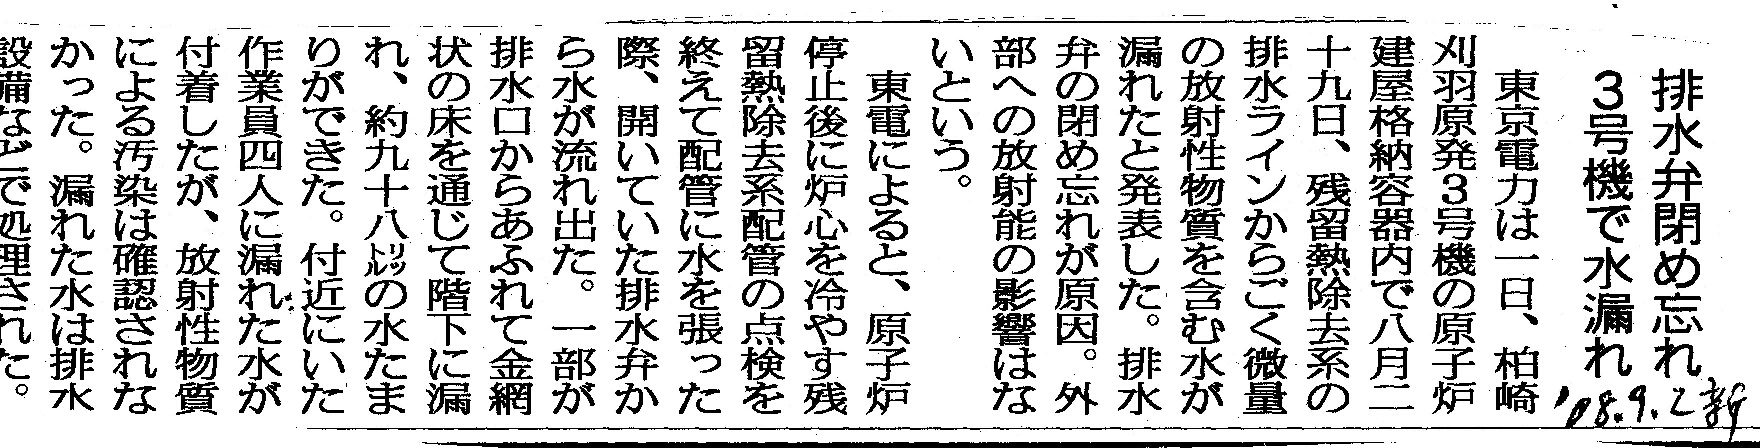 排水弁閉め忘れ
3号機で水漏れ
'08.9.2 新
東京電力は一日、柏崎
刈羽原発3号機の原子炉
建屋格納容器内で八月二
十九日、残留熱除去系の
排水ラインからごく微量
の放射性物質を含む水が
漏れたと発表した。排水
弁の閉め忘れが原因。外
部への放射能の影響はな
いという。
東電によると、原子炉
停止後に炉心を冷やす残
留熱除去系配管の点検を
終えて配管に水を張った
際、開いていた排水弁か
ら水が流れ出た。一部が
排水口からあふれて金網
状の床を通じて階下に漏
れ、約九十八リットルの水たま
りができた。付近にいた
作業員四人に漏れた水が
付着したが、放射性物質
による汚染は確認されな
かった。漏れた水は排水
設備などで処理された。